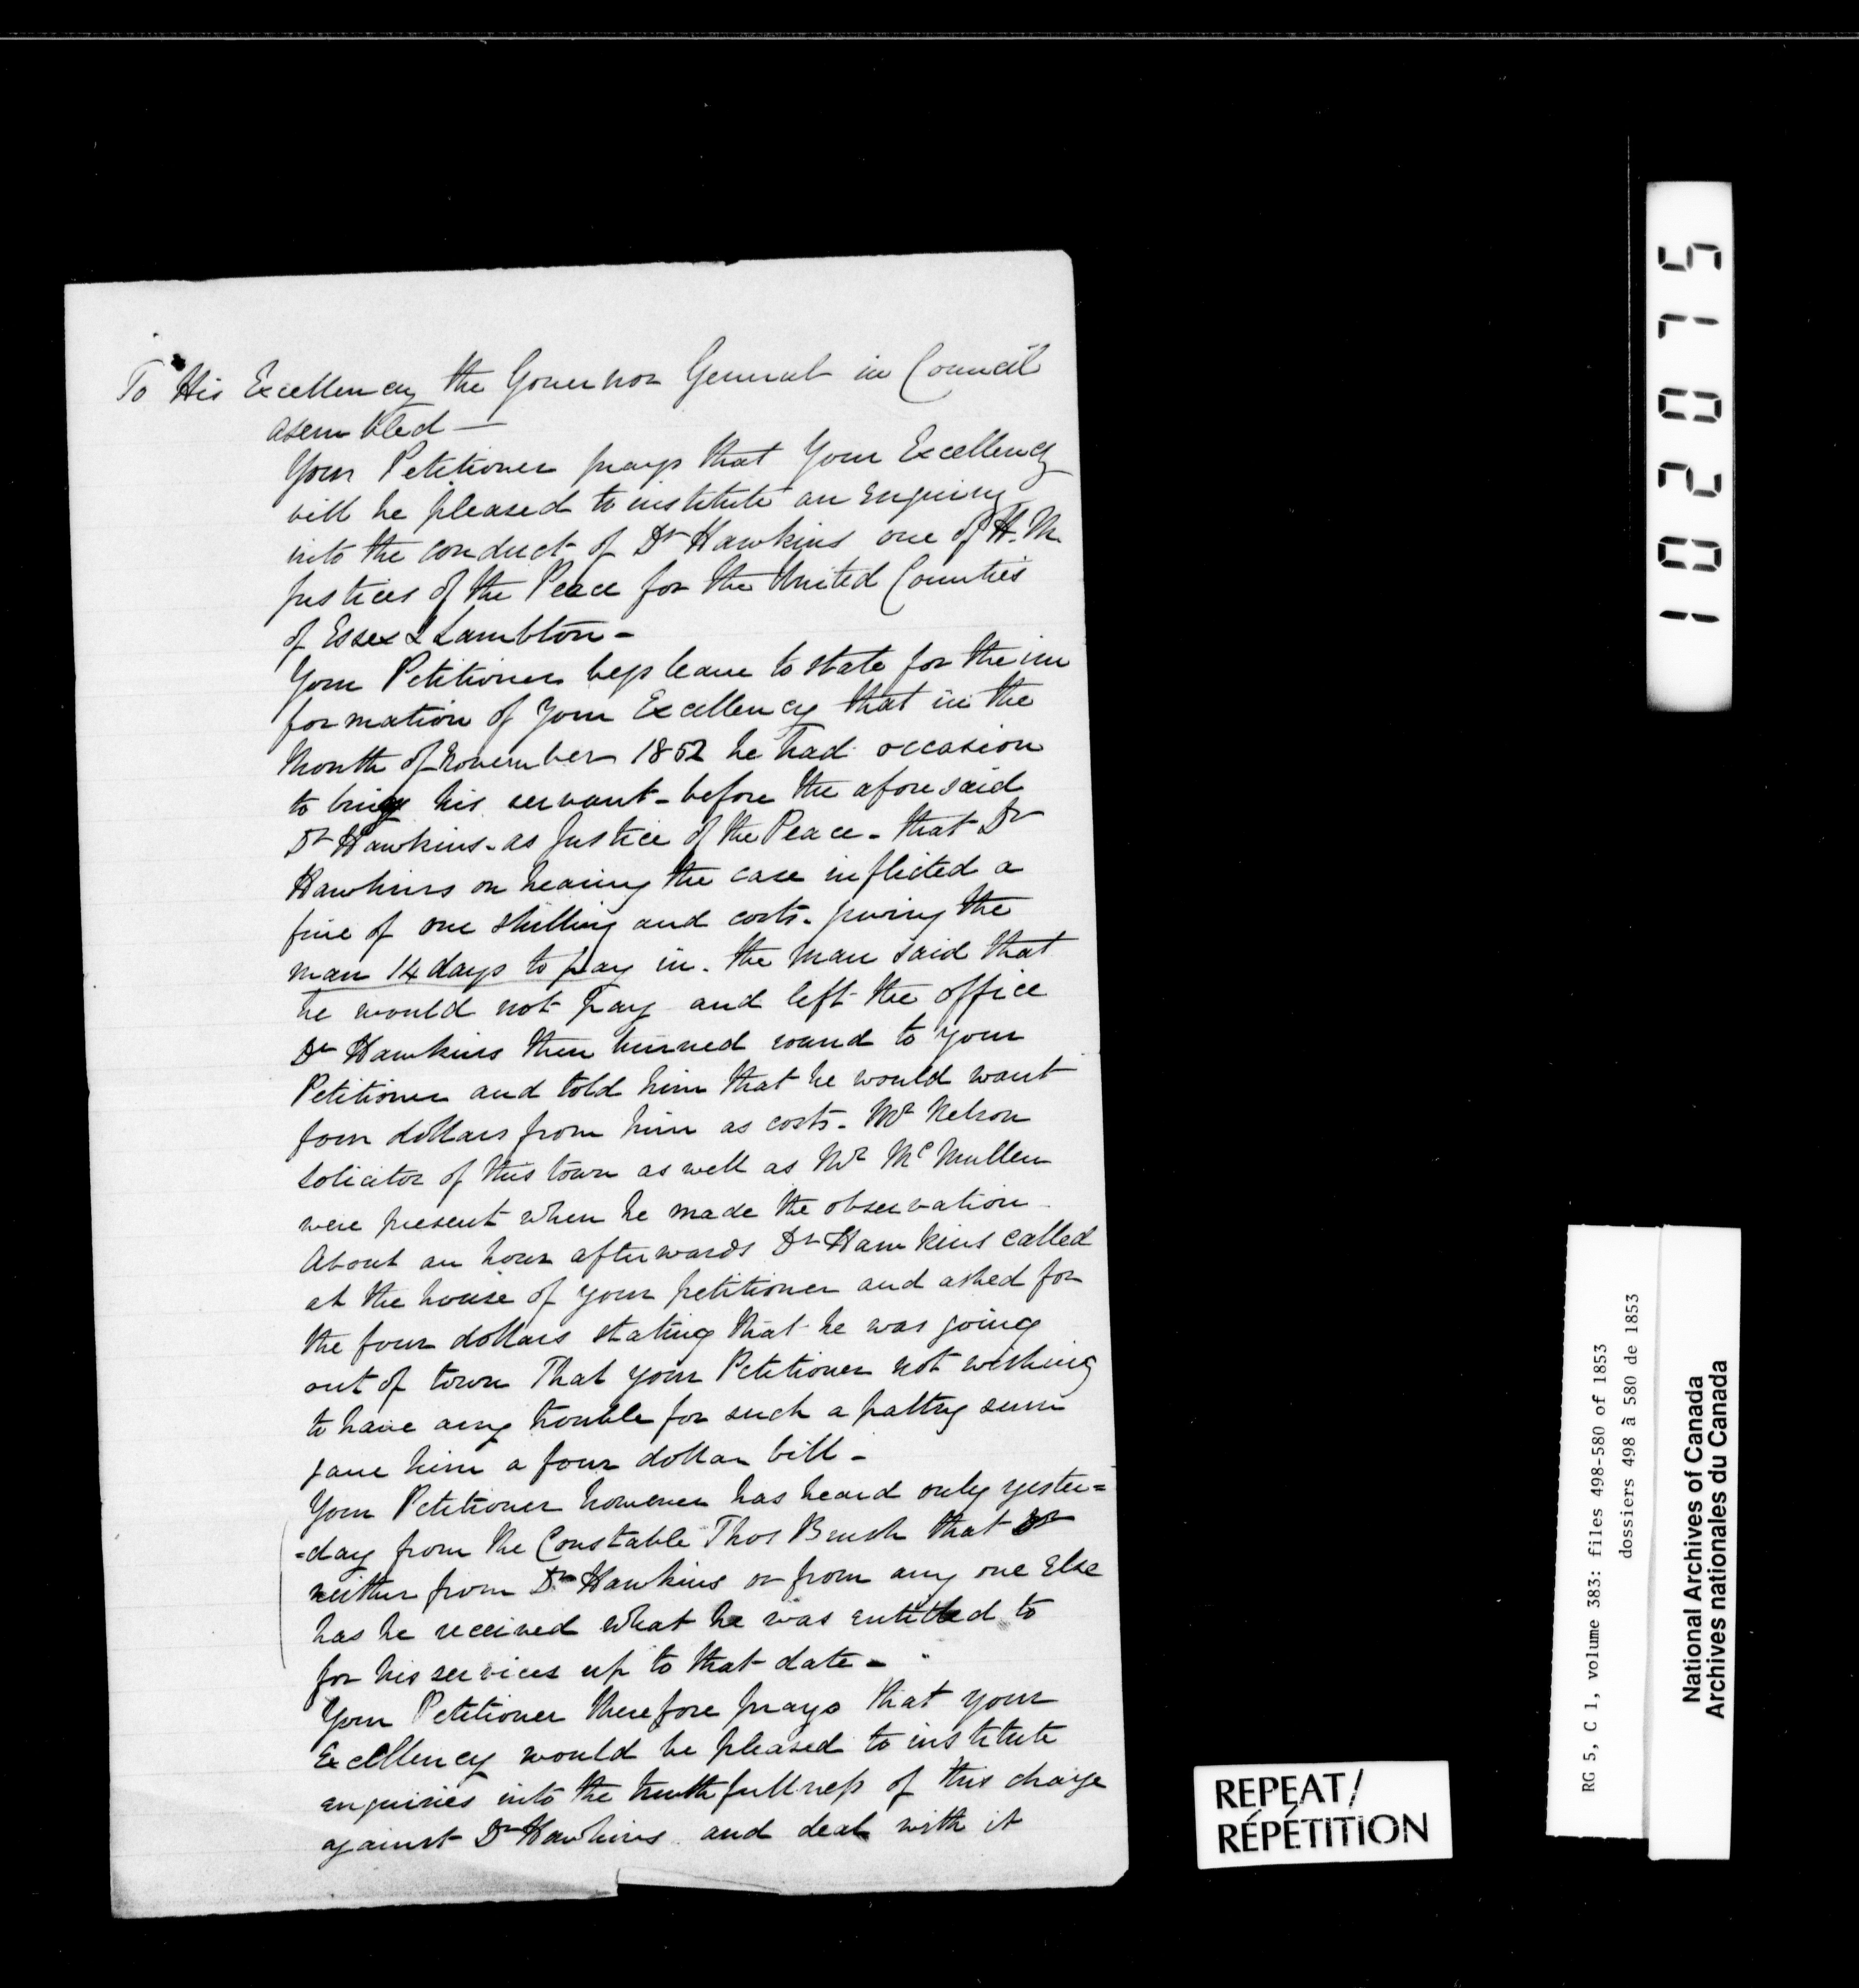 To His Excellency the Governor General in Council
asembled —
Your Petitioner prays that Your Excellency
will be pleased to institute an enquiry
into the conduct of Dr Hawkins one of H. M.
Justices of the Peace for the United Counties
of Essex & Lambton -
Your Petitioner begs leave to state for the in
formation of Your Excellency that in the
Month of November 1852 he had occasion
to bring his servant - before the aforesaid
Dr Hawkins - as Justice of the Peace - that Dr
Hawkins on hearing the case inflicted a
fine of one shilling and costs - giving the
man 14 days to pay in. the man said that
he would not pay and left the office
Dr Hawkins then turned round to your
Petitioner and told him that he would want
four dollars from him as costs - Mr Nelson
Solicitor of this town as well as Mr McMullen
were present when he made the observation -
About an hour afterwards Dr Hawkins called
at the house of your petitioner and asked for
the four dollars stating that he was going
out of town That your Petitioner not wishing
to have any trouble for such a paltry sum
gave him a four dollar bill -
Your Petitioner however has heard only yester=
=day from the Constable Thos Brush that
neither from Dr Hawkins or from any one else
has he received what he was entitled to
for his services up to that date -
Your Petitioner therefore prays that your
Excellency would be pleased to institute
enquiries into the truthfullness of this charge
against Dr Hawkins and deal with it
REPEAT/
RÉPÉTITION
102075
RG 5, C 1, volume 383: files 498-580 of 1853
dossiers 498 à 580 de 1853
National Archives of Canada
Archives nationales du Canada